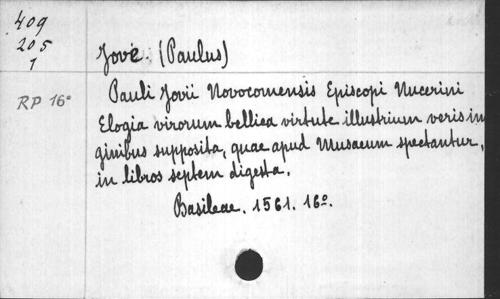 409
205
1
Jove. (Paulus)
RP 16°
Pauli Jovii Novocomensis Episcopi Nucerini
Elogia virorum bellica virtute illustrium veris im
ginibus supposita, quae apud Musaeum spectantur,
in libros septem digesta.
Basileae. 1561. 16º.